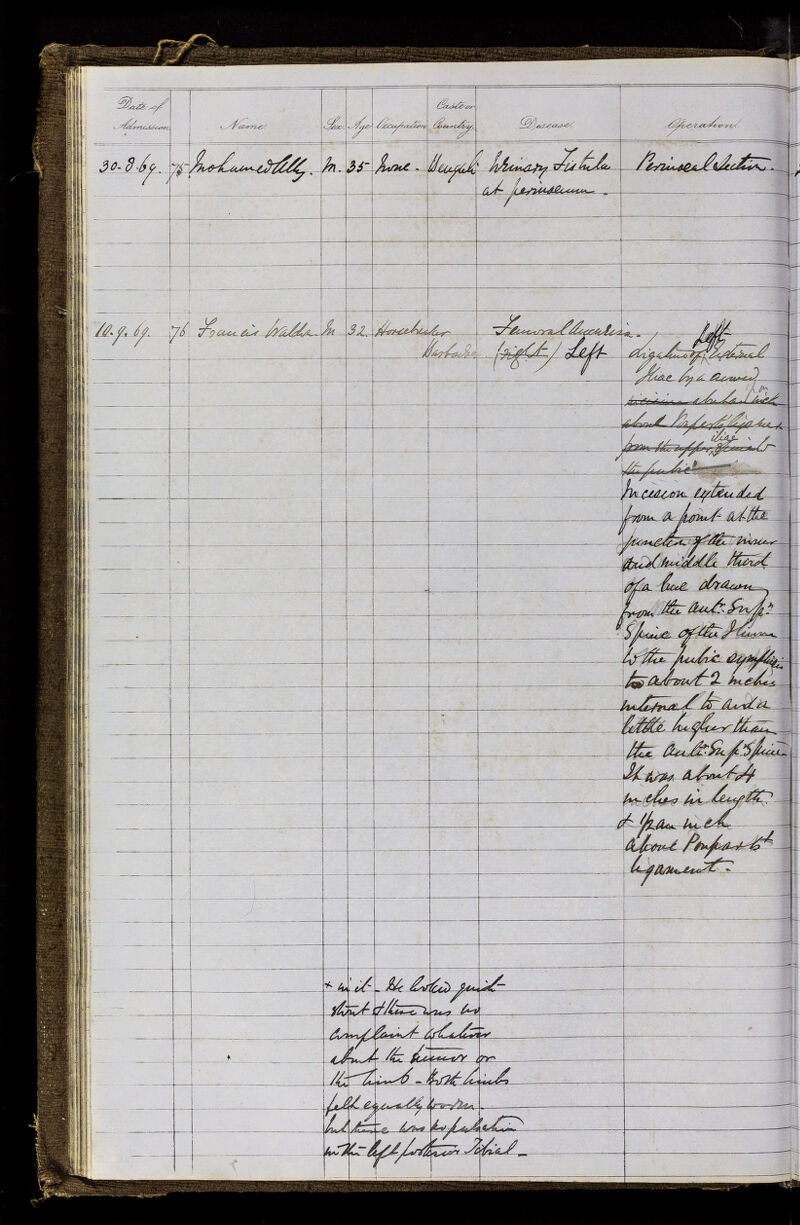 Date of Admission Name Sex Age Occupation Caste or Country Disease Operation
30.8.69. 75 M. 35 None - Bengali Urinary Fistula Perinaeal Section.
at perinaeum -
10.9.69. 76 Francis M 32 Femoral Aneurism - Left
Barbados (right) Left Ligature of External
Iliac by a curved
incision about an inch
above Poupart's Ligament
from the upper iliac spine to
the pubic
Incision extended
from a point at the
junction of the inner
and middle third
of a line drawn
from the antr. Supr.
Spine of the Ilium
to the pubic symphisis
to about 2 inches
internal to and a
little higher than
the antr. Supr. Spine
It was about 4
inches in length
& ½ an inch
above Poupart's
ligament -
+ in it - He looked quite
stout & there was no
complaint whatever
about the tumor or
the limb - Both limbs
felt equally warm -
but there was no pulsation
in the left posterior Tibial -